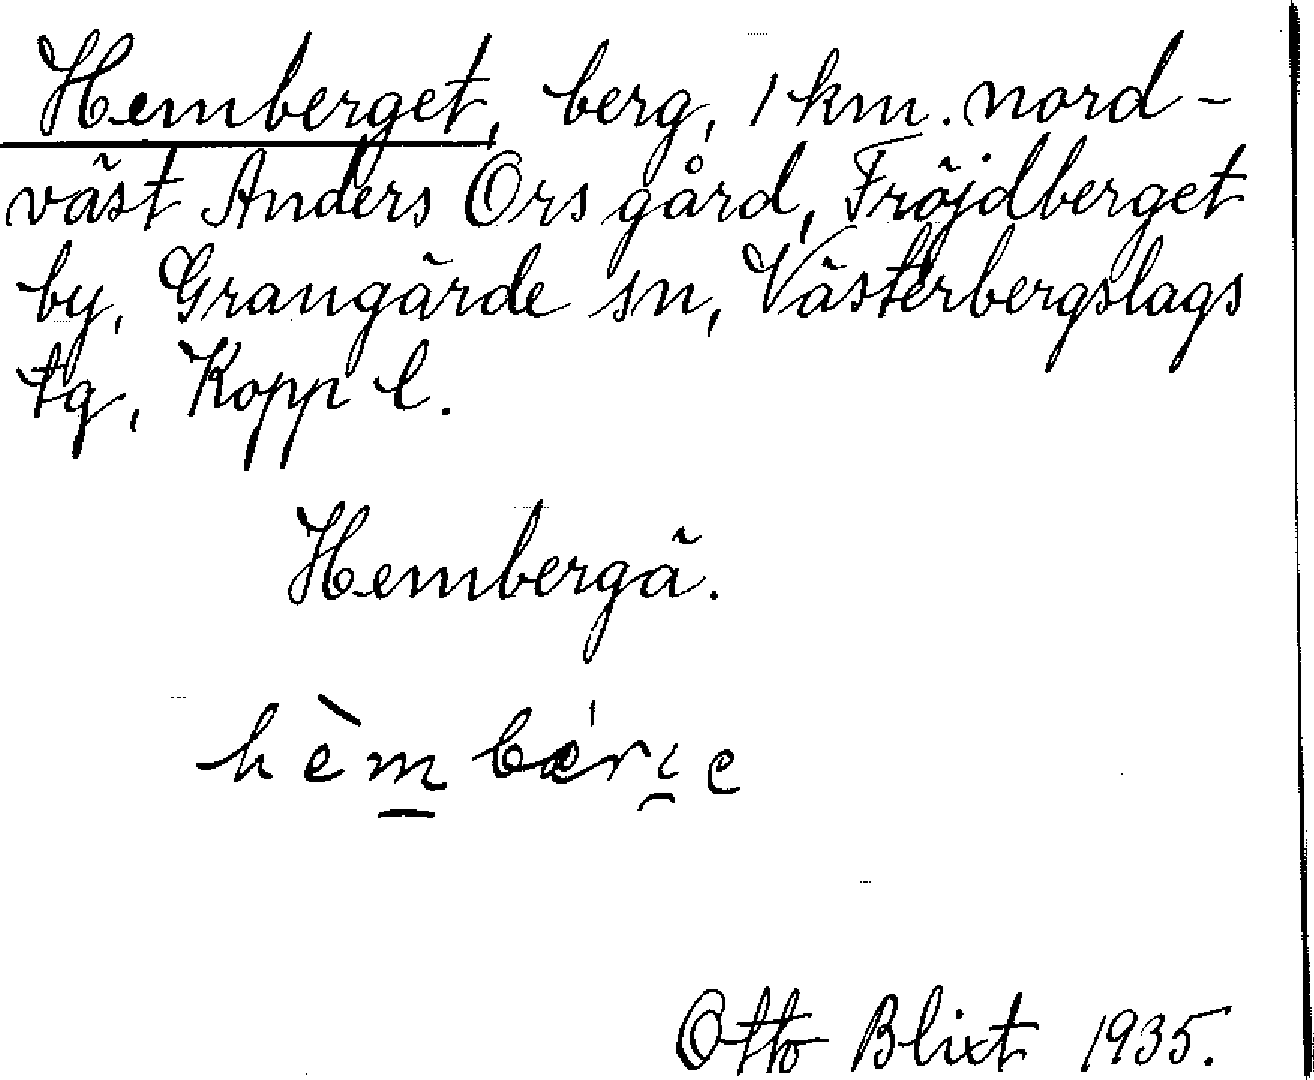 Hemberget, berg, 1 km. nord-
väst Anders Ors gård, Fröjdberget
by, Grangärde sn, Västerbergslags
tg, Kopp l.
Hembergä.
hèm bær̍i̯e
Otto Blixt 1935.